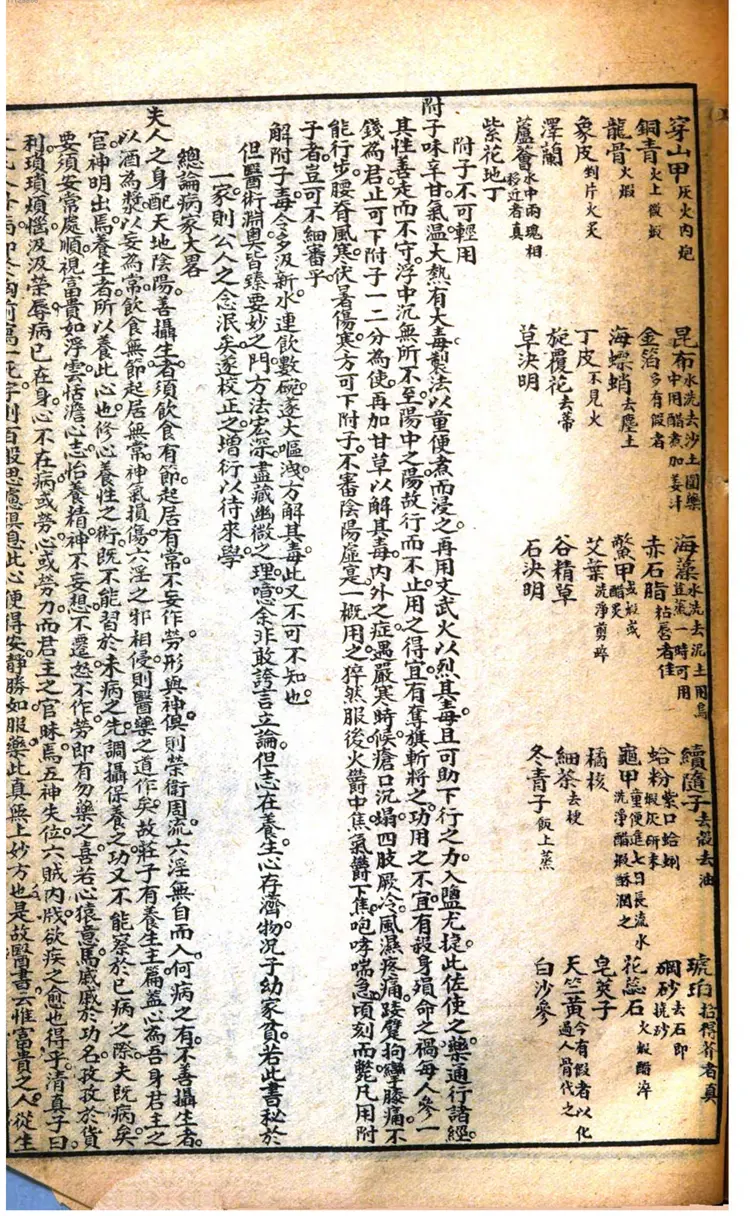 穿山甲灰火內炮 昆布水洗去沙土圓藥中用醋煮加姜汁 海藻水洗去泥土用烏豆蒸一時可用 續隨子去殼去油 琥珀拾得芥者真
銅青火上微煅 金箔多有假者 赤石脂粘唇者佳 蛤粉紫口蛤蜊煅灰研末 硇砂去石即硫砂
龍骨火煅 海螵蛸去塵土 鱉甲或煅或醋炙 龜甲童便進七日長流水洗淨醋煅酥潤之 花蕊石火煅醋淬
象皮剉片火炙 丁皮不見火 艾葉洗淨剪碎 橘核 皂莢子
澤蘭 旋覆花去蒂 谷精草 細茶去梗 天竺黃今有假者以化過人骨代之
蘆薈水中兩塊相投近者真 草決明 石決明 冬青子飯上蒸 白沙參
紫花地丁
附子不可輕用
附子味辛甘氣温大熱有大毒製法以童便煮而浸之再用文武火以烈其毒且可助下行之力入鹽尤捷此佐使之藥通行諸經
其性善走而不守浮中沉無所不至陽中之陽故行而不止用之得宜有奪旗斬將之功用之不宜有殺身殞命之禍每人參一
錢為君止可下附子一二分為使再加甘草以解其毒內外之症遇嚴寒時候瘡口沉塌四肢厥冷風濕疼痛踒躄拘攣手膝痛不
能行步腰脊風寒伏暑傷寒方可下附子不審陰陽虛寔一概用之猝然服後火欝中焦氣欝下焦咆哮喘急頃刻而斃凡用附
子者豈可不細審乎
解附子毒令多汲新水連飲數碗遂大嘔洩方解其毒此又不可不知也
但醫術淵奧皆臻要妙之門方法宏深盡藏幽微之理噫余非敢誇言立論但志在養生心存濟物況子幼家貧若此書秘於
一家則公人之念泯矣遂校正之增衍以待來學
總論病家大畧
夫人之身配天地陰陽善攝生者須飲食有節起居有常不妄作勞形與神俱則榮衛周流六淫無自而入何病之有不善攝生者
以酒為漿以妄為常飲食無節起居無常神氣損傷六淫之邪相侵則醫藥之道作矣故莊子有養生主篇蓋心為吾身君主之
官神明出焉養生者所以養此心也修心養性之術既不能習於未病之先調攝保養之功又不能察於已病之際夫既病矣
要須安常處順視富貴如浮雲恬澹心志怡養精神不妄想不遷怒不作勞即有勿藥之喜若心猿意馬戚戚於功名孜孜於貨
利瑣瑣煩惱汲汲榮辱病已在身心不在病或勞心或勞力而君主之官昧焉五神失位六賊內戕欲疾之愈也得乎清真子曰
百般思慮俱息此心便得安靜勝如服藥此真無上妙方也是故醫書云惟富貴之人從生